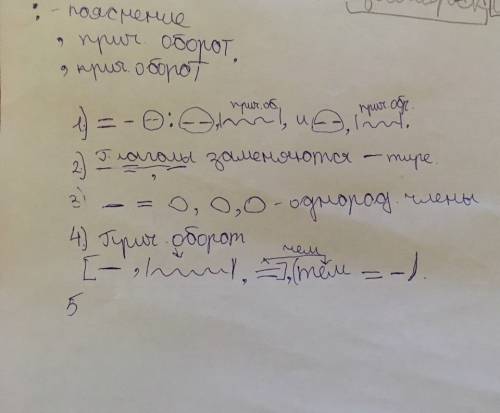 : - пояснение
, прич. оборот.
, прич. оборот
прич. об. прич. обр.
1) = - ⊖ : ⊖, |~~~|, и ⊖, |~~~|.
2) Глаголы заменяются – тире.
3) — = O, O, O - однород. члены
4) Прич. оборот
чем
[—, |~~~|, =], (тем = -).
5